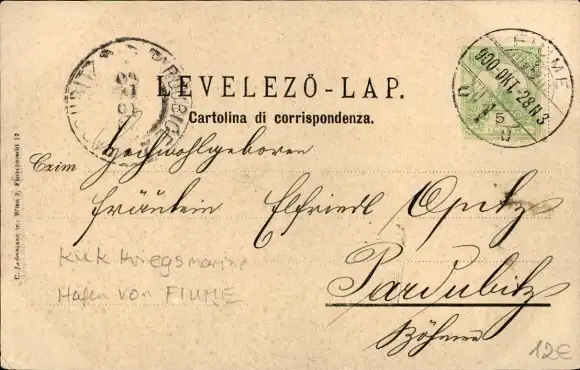 LEVELEZÖ-LAP.
Cartolina di corrispondenza.
FIUME
900 OKT. 28 N 3
PARDUBITZ PARDUBICE
Czim Hochwohlgeboren
Fräulein Elfriede Opitz
Pardubitz
Böhmen
KuK Kriegsmarine
Hafen von FIUME
12€